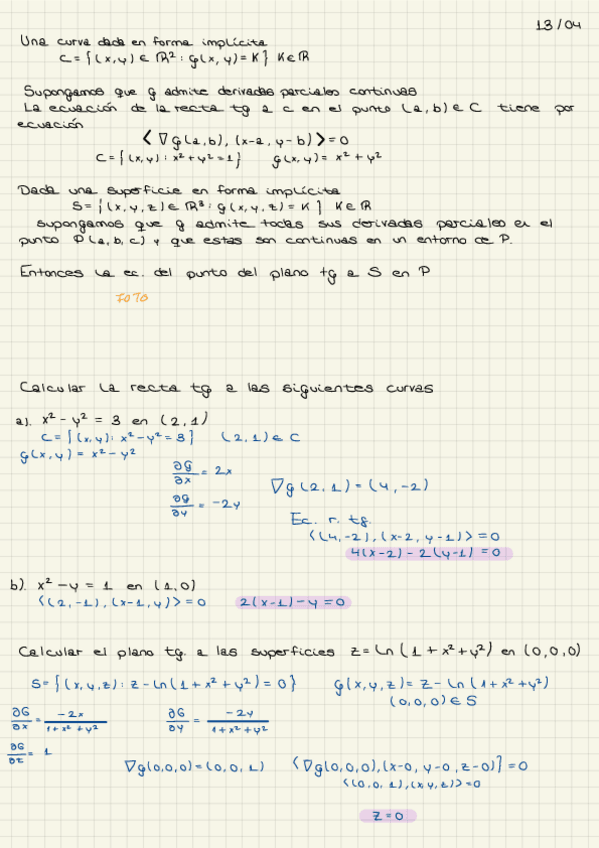 13/04
Una curva dada en forma implícita
C = {(x,y) ∈ ℝ² : g(x,y) = K} K ∈ ℝ
Supongamos que g admite derivadas parciales continuas
La ecuación de la recta tg a c en el punto (a,b) ∈ C tiene por
ecuación
⟨∇g(a,b), (x-a, y-b)⟩ = 0
C = {(x,y) : x² + y² = 1} g(x,y) = x² + y²
Dada una superficie en forma implícita
S = {(x,y,z) ∈ ℝ³ : g(x,y,z) = K} K ∈ ℝ
supongamos que g admite todas sus derivadas parciales en el
punto P(a,b,c) y que estas son continuas en un entorno de P.
Entonces la ec. del punto del plano tg a S en P
FOTO
Calcular la recta tg a las siguientes curvas
a). x² - y² = 3 en (2,1)
C = {(x,y) : x² - y² = 3} (2,1) ∈ C
g(x,y) = x² - y²
∂g/∂x = 2x
∂g/∂y = -2y
∇g(2,1) = (4,-2)
Ec. r. tg.
⟨(4,-2), (x-2, y-1)⟩ = 0
4(x-2) - 2(y-1) = 0
b). x² - y = 1 en (1,0)
⟨(2,-1), (x-1, y)⟩ = 0 2(x-1) - y = 0
Calcular el plano tg. a las superficies z = ln(1 + x² + y²) en (0,0,0)
S = {(x,y,z) : z - ln(1 + x² + y²) = 0} g(x,y,z) = z - ln(1 + x² + y²)
(0,0,0) ∈ S
∂G/∂x = -2x/(1 + x² + y²) ∂G/∂y = -2y/(1 + x² + y²)
∂G/∂z = 1
∇g(0,0,0) = (0,0,1) ⟨∇g(0,0,0), (x-0, y-0, z-0)⟩ = 0
⟨(0,0,1), (x,y,z)⟩ = 0
z = 0